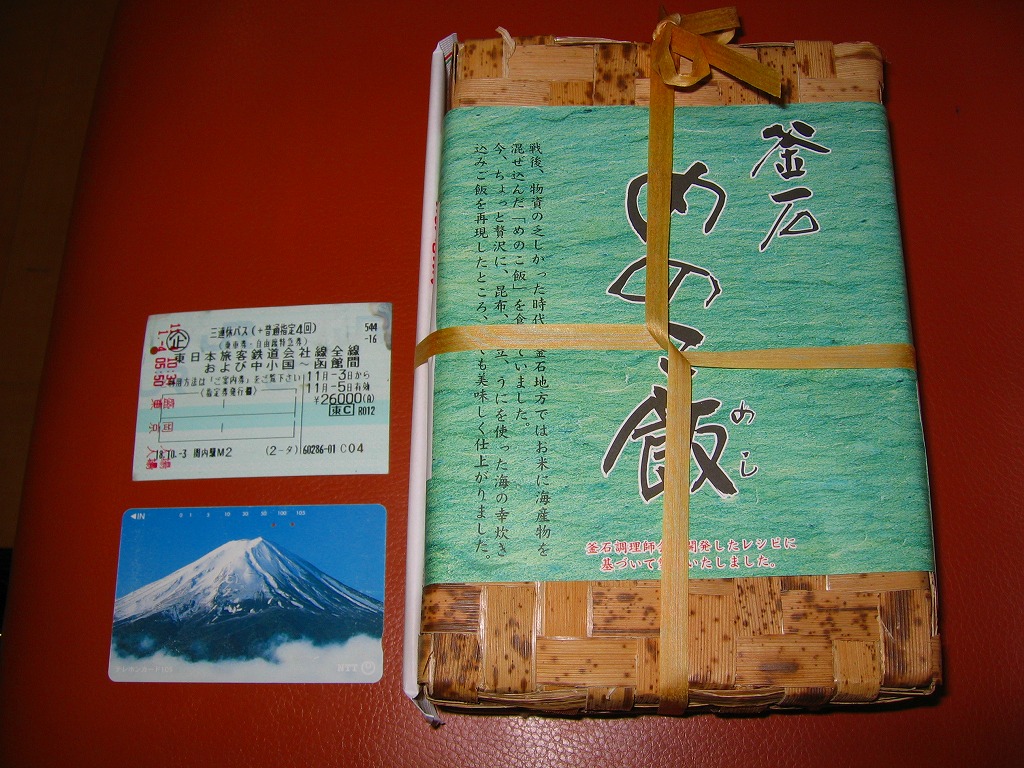 三連休パス(+普通指定4回)
(乗車券・自由席特急券)
544
-16
企
東日本旅客鉄道会社線全線
および中小国~函館間
使用方法は「ご案内券」をご覧下さい
11月-3日から
(指定券発行欄)
11月-5日有効
¥26000(A)
東C R012
18.10.-3
(2-タ)
60286-01 C04
◀IN
0 1 3 10 30 50 100 105
テレホンカード105
NTT
釜石
めのこ飯
めし
戦後、物資の乏しかった時代 釜石地方ではお米に海産物を
混ぜ込んだ「めのこ飯」を食 いました。
今、ちょっと贅沢に、昆布、 立、うにを使った海の幸炊き
込みご飯を再現したところ、 も美味しく仕上がりました。
釜石調理師会 開発したレシピに
基づいて いたしました。